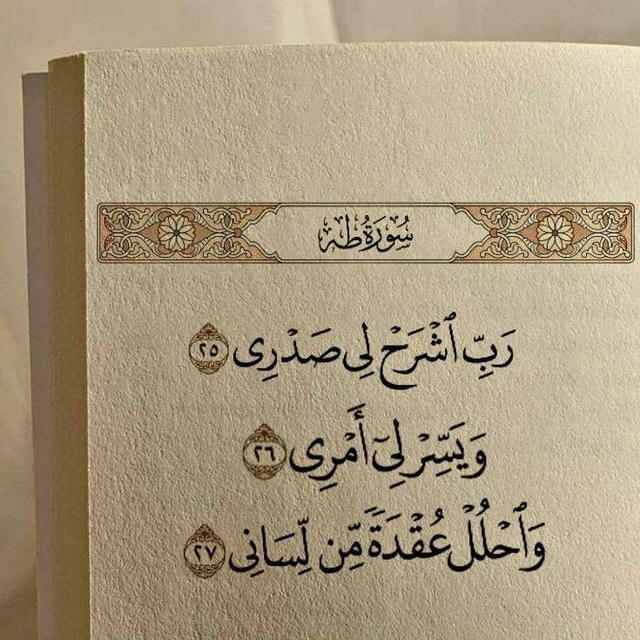 سُورَةُ طه
رَبِّ ٱشْرَحْ لِى صَدْرِى ٢٥
وَيَسِّرْ لِىٓ أَمْرِى ٢٦
وَٱحْلُلْ عُقْدَةً مِّن لِّسَانِى ٢٧